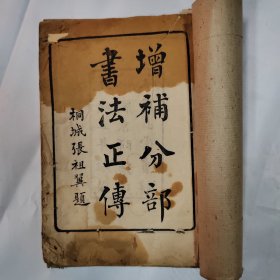 增補分部
書法正傳
桐城張祖翼題